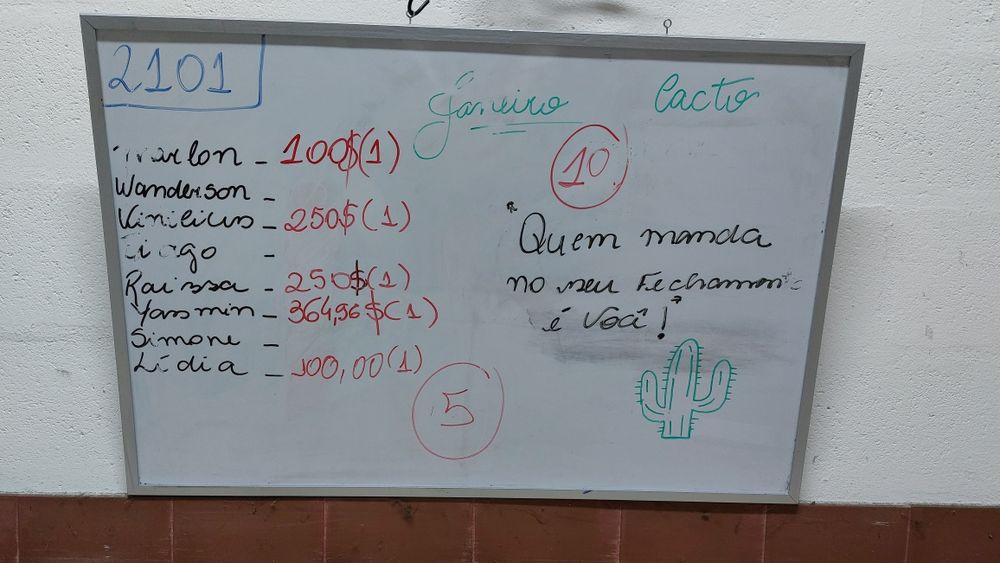 2101
Janeiro
Cacto
Marlon - 100$(1)
Wanderson -
Vinilius - 250$(1)
Tiago -
Raissa - 250$(1)
Yasmin - 364,96$(1)
Simone -
Lídia - 100,00(1)
5
10
"Quem manda
no seu Fechamento
é Você!"